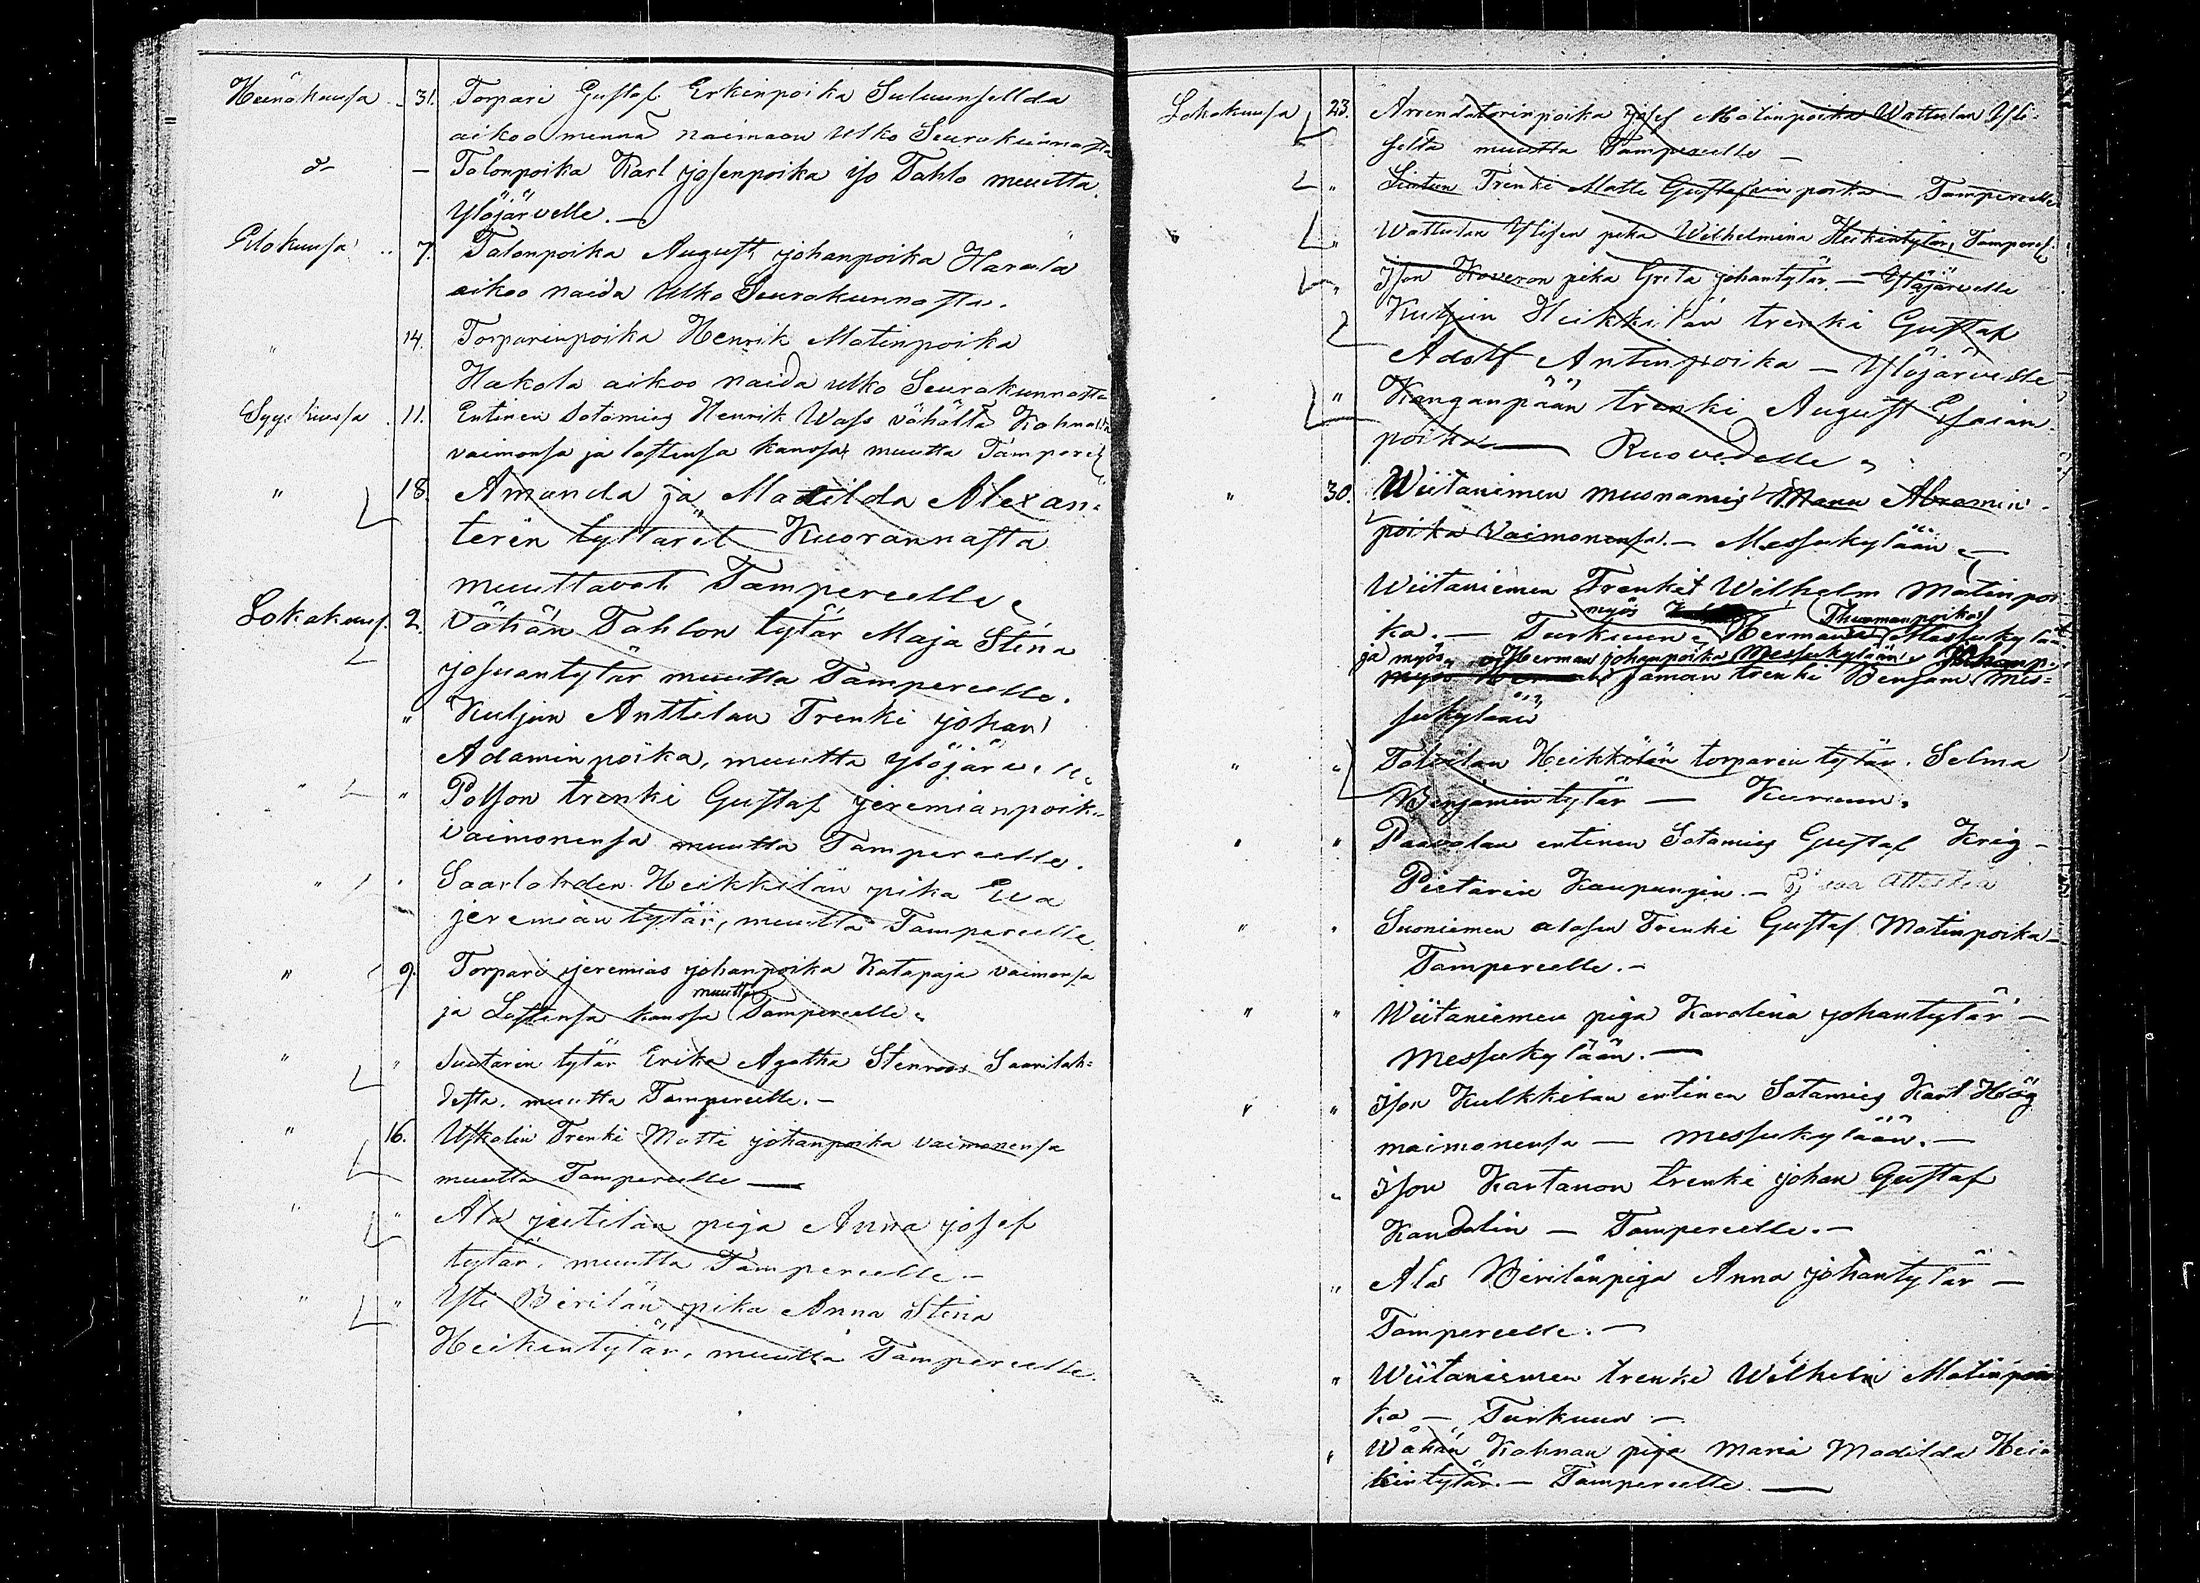 Heinäkuusa 31. Torpari Gustaf Erkinpoika Suluunsellda
aikoo mennä naimaan Ulko Seurakunnasta
d:o — Talonpoika Karl josenpoika iso Tahlo muutta
Ylöjärvelle. —
Elokuusa 7. Talonpoika August johanpoika Harala
aikoo naida Ulko Seurakunnasta.
" 14. Torparinpoika Henrik Matinpoika
Hakola aikoo naida ulko Seurakunnasta
Syyskuusa 11. Entinen Sotamies Henrik Wass vähältä Kahnalda
vaimonsa ja lastensa kanssa muutta Tamperel
" 18. Amanda ja Matilda Alexan=
terin tyttäret Kuorannasta
muuttavat Tampereelle
Lokakuus. 2. Vähän Tahlon tytär Maja Stina
josuantytär muutta Tampereelle.
" Kuljun Anttilan Trenki johan
Adaminpoika, muutta Ylöjärvelle
" " Polson trenki Gustaf jeremianpoik=
vaimonensa muutta Tampereelle.
" Saarlahden Heikkilän pika Eva
jeremiantytär, muutta Tampereelle
" 9. Torpari jeremias johanpoika Katapaja vaimonsa
muutta
ja Lastensa kanssa Tampereelle
" " Suutarin tytär Erika Agatha Stenroos Saarilah=
desta. muutta Tampereelle. —
" 16. Uskalin Trenki Matti johanpoika vaimonensa
muutta Tampereelle —
" " Ala jutilan piga Anna josef
tytär. muutta Tampereelle —
" " Yli Virilän pika Anna Stina
Heikintytär. muutta Tampereelle.
Lokakuusa 23. Arrendatorinpoika josef Matinpoika Wattulan Yli=
seltä muutta Tampereelle —
" Trenki Matti Gustafvinpoika — Tampereelle
" Wattulan Ylisen pika Wilhelmina Heikintytär, Tamperel
" Ison Koveron pika Greta johantytär — Ylöjärvelle
Kuljun Heikkilän trenki Gustaf
Adolf Antinpoika — Ylöjärvelle
" Kanganpään trenki August Esaian
poika — Ruovedelle
" 30. Wiitaniemen muonamies Manu Abramin
poika Vaimonensa. — Messukylään —
Wiitaniemen Trenkit Wilhelm Matinpoi
myös Thuomanpoika
ka. — Turkuun Herman Messukylä=
ja myös Herman johanpoika Messukylään
trenki Benjam Mes=
sukylään
" " Heikkilän torparin tytär. Selma
Benjamintytär — Kuruun.
" " Paavolan entinen Sotamies Gustaf Krig —
Pietarin Kaupungin. —
" " Suoniemen alasen Trenki Gustaf Matinpoika —
Tampereelle. —
" " Wiitaniemen piga Karolina johantytär —
Messukylään. —
" " Ison Kulkkilan entinen Sotamies Karl Hög
maimonensa — Messukylään. —
" Ison Kartanon trenki johan Gustaf
Kandolin — Tampereelle. —
" Ala Virilänpiga Anna johantytär —
Tampereelle. —
" Wiitaniemen trenki Wilhelm Matinpoi
ka — Turkuun —
" Wähän Kahnan piga Maria Madilda Hei=
kintytär. — Tampereelle —